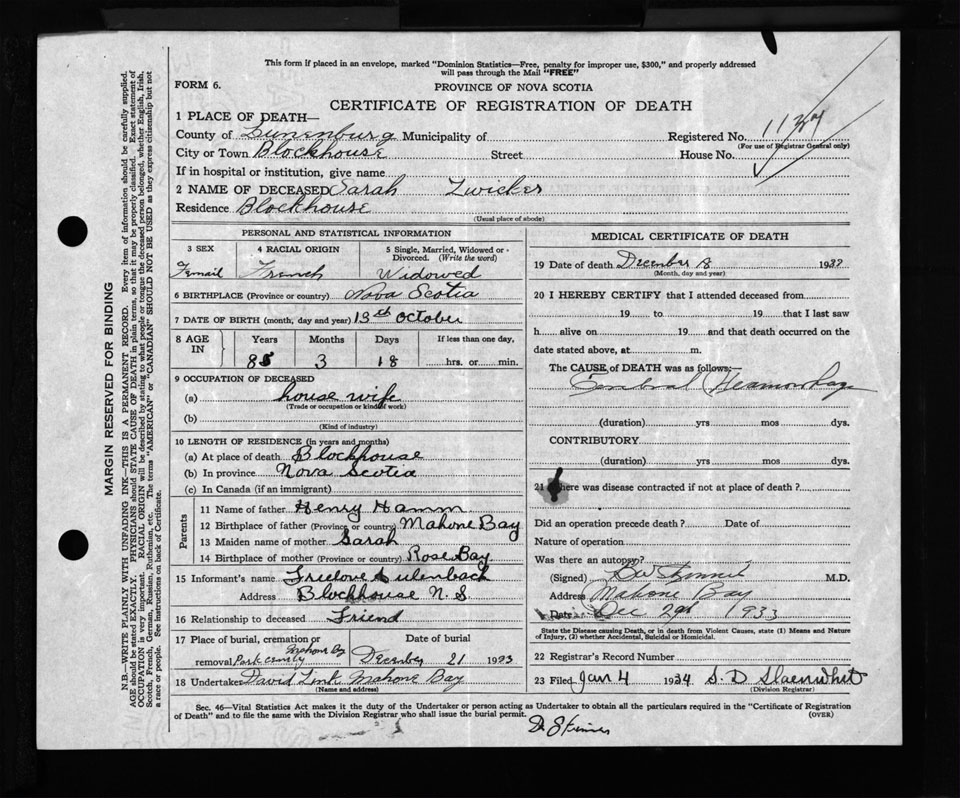 This form if placed in an envelope, marked "Dominion Statistics—Free, penalty for improper use, $300," and properly addressed
will pass through the Mail "FREE"
FORM 6.
PROVINCE OF NOVA SCOTIA
CERTIFICATE OF REGISTRATION OF DEATH
1 PLACE OF DEATH—
County of Lunenburg Municipality of
Registered No.
(For use of Registrar General only)
City or Town Blockhouse Street House No.
If in hospital or institution, give name
2 NAME OF DECEASED Sarah Zwicker
Residence Blockhouse
(Usual place of abode)
PERSONAL AND STATISTICAL INFORMATION
3 SEX 4 RACIAL ORIGIN 5 Single, Married, Widowed or Divorced. (Write the word)
Femail French Widowed
6 BIRTHPLACE (Province or country) Nova Scotia
7 DATE OF BIRTH (month, day and year) 13th October
8 AGE IN Years Months Days If less than one day,
85 3 18 hrs. or min.
9 OCCUPATION OF DECEASED
(a) house wife
(Trade or occupation or kind of work)
(b)
(Kind of industry)
10 LENGTH OF RESIDENCE (in years and months)
(a) At place of death Blockhouse
(b) In province Nova Scotia
(c) In Canada (if an immigrant)
Parents
11 Name of father Henry Hamm
12 Birthplace of father (Province or country) Mahone Bay
13 Maiden name of mother Sarah
14 Birthplace of mother (Province or country) Rose Bay
15 Informant's name Freelove Eulenback
Address Blockhouse N.S.
16 Relationship to deceased Friend
17 Place of burial, cremation or removal Mahone Bay Park
Date of burial
December 21 1933
18 Undertaker David Link Mahone Bay
(Name and address)
MEDICAL CERTIFICATE OF DEATH
19 Date of death December 18 193
(Month, day and year)
20 I HEREBY CERTIFY that I attended deceased from
19 to 19 that I last saw
h alive on 19 and that death occurred on
date stated above, at m.
The CAUSE of DEATH was as follows:—
Cerebral Heamorhage
(duration) yrs mos dys.
CONTRIBUTORY
(duration) yrs mos dys.
21 Where was disease contracted if not at place of death?
Did an operation precede death? Date of
Nature of operation
Was there an autopsy?
(Signed) M.D.
Address Mahone Bay
Date Dec 29th 1933
State the Disease causing Death, or in death from Violent Causes, state (1) Means and
Nature of Injury, (2) whether Accidental, Suicidal or Homicidal.
22 Registrar's Record Number
23 Filed Jan 4 1934 S. D Slaenwhit
(Division Registrar)
Sec. 46—Vital Statistics Act makes it the duty of the Undertaker or person acting as Undertaker to obtain all the particulars required in the "Certificate of Registration
of Death" and to file the same with the Division Registrar who shall issue the burial permit.
(OVER)
MARGIN RESERVED FOR BINDING
N.B.—WRITE PLAINLY WITH UNFADING INK—THIS IS A PERMANENT RECORD. Every item of information should be carefully supplied.
AGE should be stated EXACTLY. PHYSICIANS should STATE CAUSE OF DEATH in plain terms, so that it may be properly classified. Exact statement of
OCCUPATION is very important. RACIAL ORIGIN will be described by stating to what people or tongue the deceased person belonged, whether English, Irish,
Scotch, French, German, Russian, Ruthenian, etc. The terms "AMERICAN" or "CANADIAN" SHOULD NOT BE USED as they express citizenship but not
a race or people. See instructions on back of Certificate.